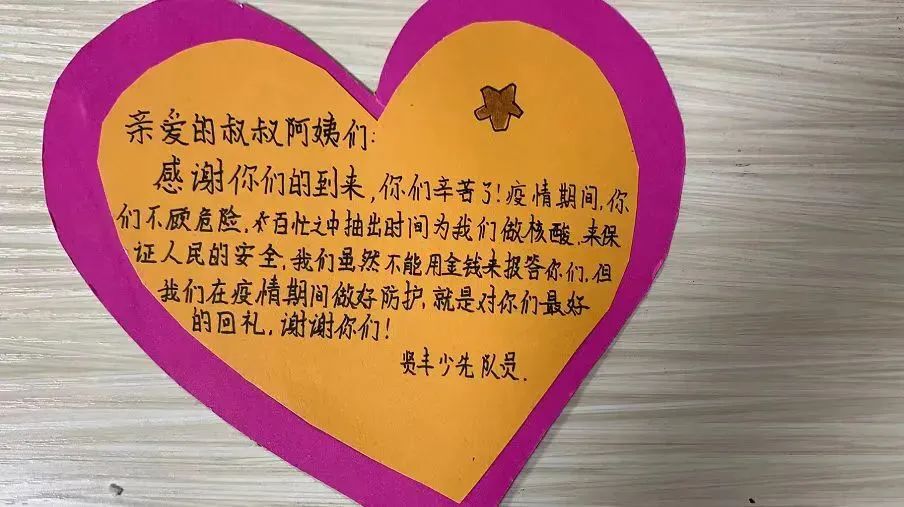 亲爱的叔叔阿姨们:
感谢你们的到来,你们辛苦了!疫情期间,你
们不顾危险,百忙之中抽出时间为我们做核酸,来保
证人民的安全,我们虽然不能用金钱来报答你们,但
我们在疫情期间做好防护,就是对你们最好
的回礼,谢谢你们!
贤丰少先队员.